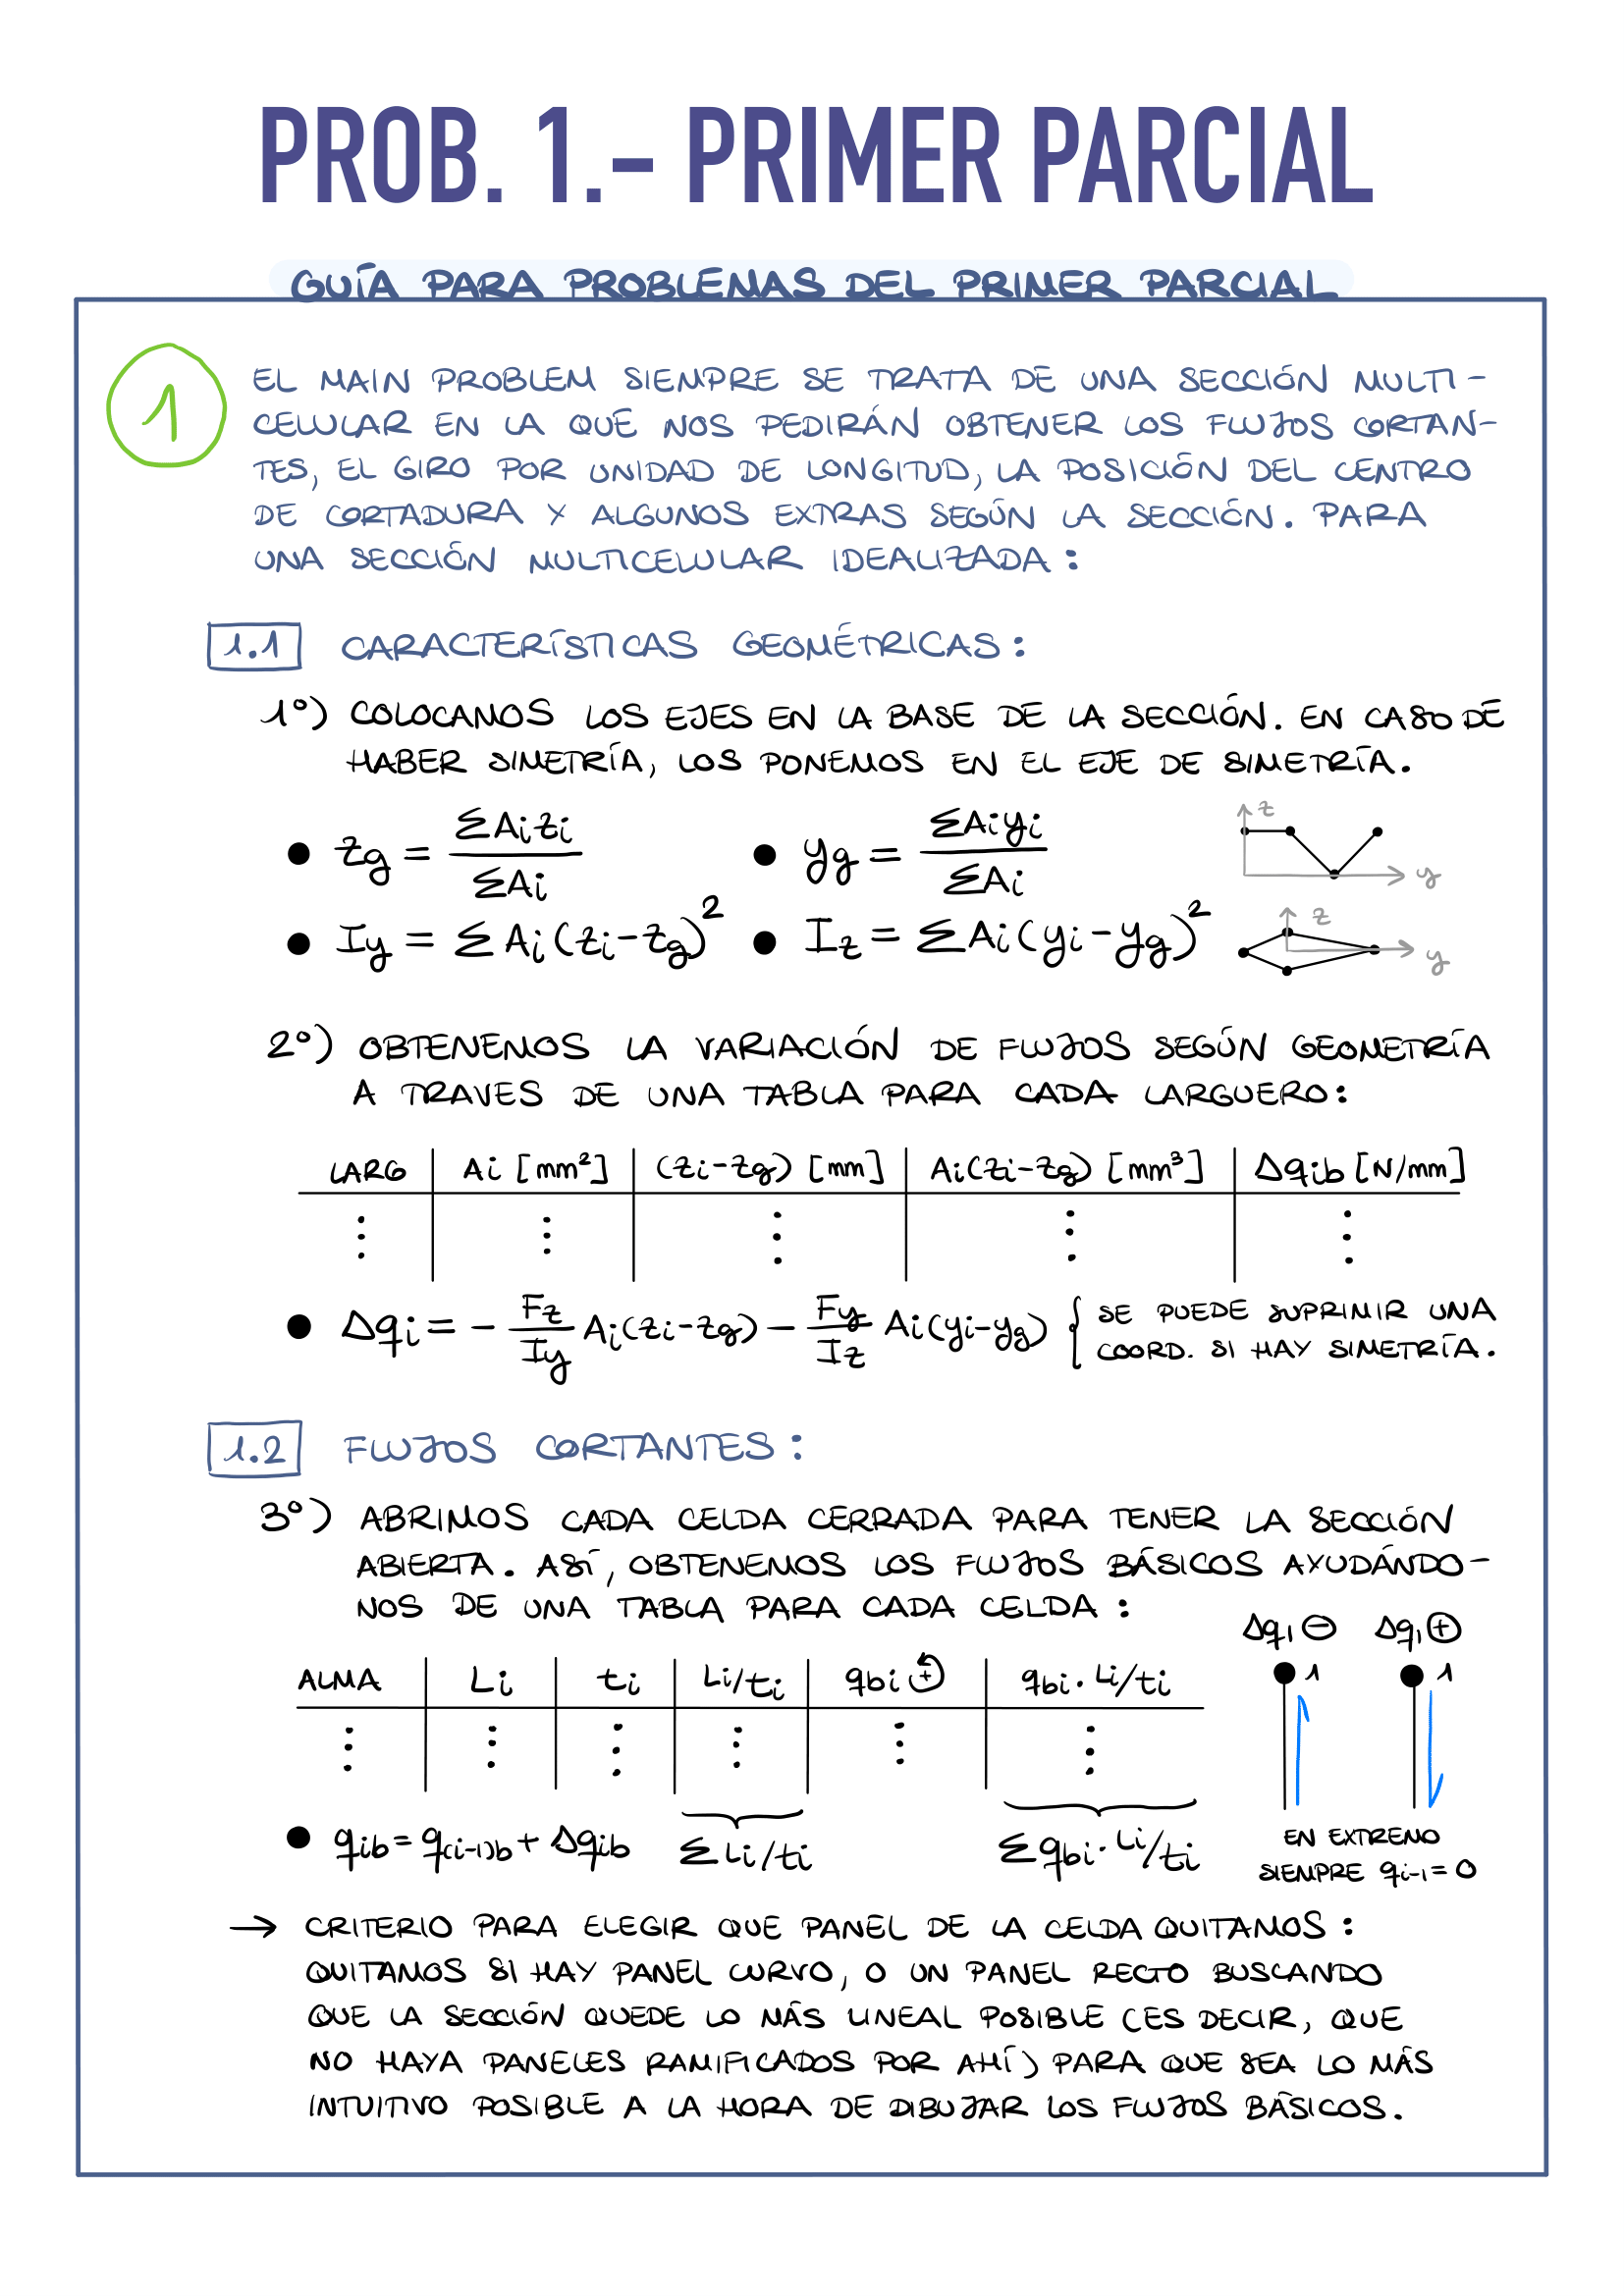 PROB. 1.- PRIMER PARCIAL
GUÍA PARA PROBLEMAS DEL PRIMER PARCIAL
1
EL MAIN PROBLEM SIEMPRE SE TRATA DE UNA SECCIÓN MULTI-
CELULAR EN LA QUE NOS PEDIRÁN OBTENER LOS FLUJOS CORTAN-
TES, EL GIRO POR UNIDAD DE LONGITUD, LA POSICIÓN DEL CENTRO
DE CORTADURA Y ALGUNOS EXTRAS SEGÚN LA SECCIÓN. PARA
UNA SECCIÓN MULTICELULAR IDEALIZADA:
1.1 CARACTERÍSTICAS GEOMÉTRICAS:
1º) COLOCAMOS LOS EJES EN LA BASE DE LA SECCIÓN. EN CASO DE
HABER SIMETRÍA, LOS PONEMOS EN EL EJE DE SIMETRÍA.
• zg = ΣAizi / ΣAi • yg = ΣAiyi / ΣAi z y
• Iy = ΣAi(zi-zg)² • Iz = ΣAi(yi-yg)² z y
2º) OBTENEMOS LA VARIACIÓN DE FLUJOS SEGÚN GEOMETRÍA
A TRAVES DE UNA TABLA PARA CADA LARGUERO:
LARG Ai [mm²] (zi-zg) [mm] Ai(zi-zg) [mm³] Δqib [N/mm]
• Δqi = - Fz/Iy Ai(zi-zg) - Fy/Iz Ai(yi-yg) { SE PUEDE SUPRIMIR UNA
COORD. SI HAY SIMETRÍA.
1.2 FLUJOS CORTANTES:
3º) ABRIMOS CADA CELDA CERRADA PARA TENER LA SECCIÓN
ABIERTA. ASÍ, OBTENEMOS LOS FLUJOS BÁSICOS AYUDÁNDO-
NOS DE UNA TABLA PARA CADA CELDA:
Δq1 ⊖ Δq1 ⊕
ALMA Li ti Li/ti qbi + qbi·Li/ti 1 1
• qib = q(i-1)b + Δqib ΣLi/ti Σqbi·Li/ti
EN EXTREMO
SIEMPRE qi-1 = 0
→ CRITERIO PARA ELEGIR QUE PANEL DE LA CELDA QUITAMOS:
QUITAMOS SI HAY PANEL CURVO, O UN PANEL RECTO BUSCANDO
QUE LA SECCIÓN QUEDE LO MÁS LINEAL POSIBLE (ES DECIR, QUE
NO HAYA PANELES RAMIFICADOS POR AHÍ) PARA QUE SEA LO MÁS
INTUITIVO POSIBLE A LA HORA DE DIBUJAR LOS FLUJOS BÁSICOS.